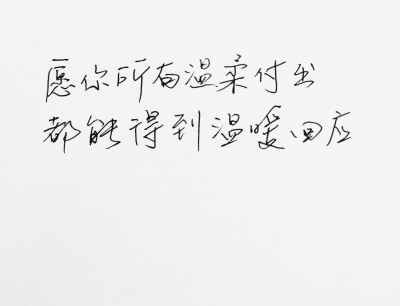 愿你所有温柔付出
都能得到温暖回应